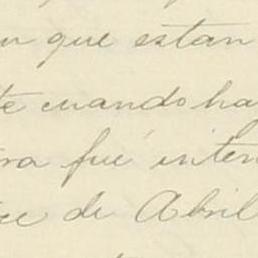 que estan
te cuando ha
ra fué inten
ce de Abril